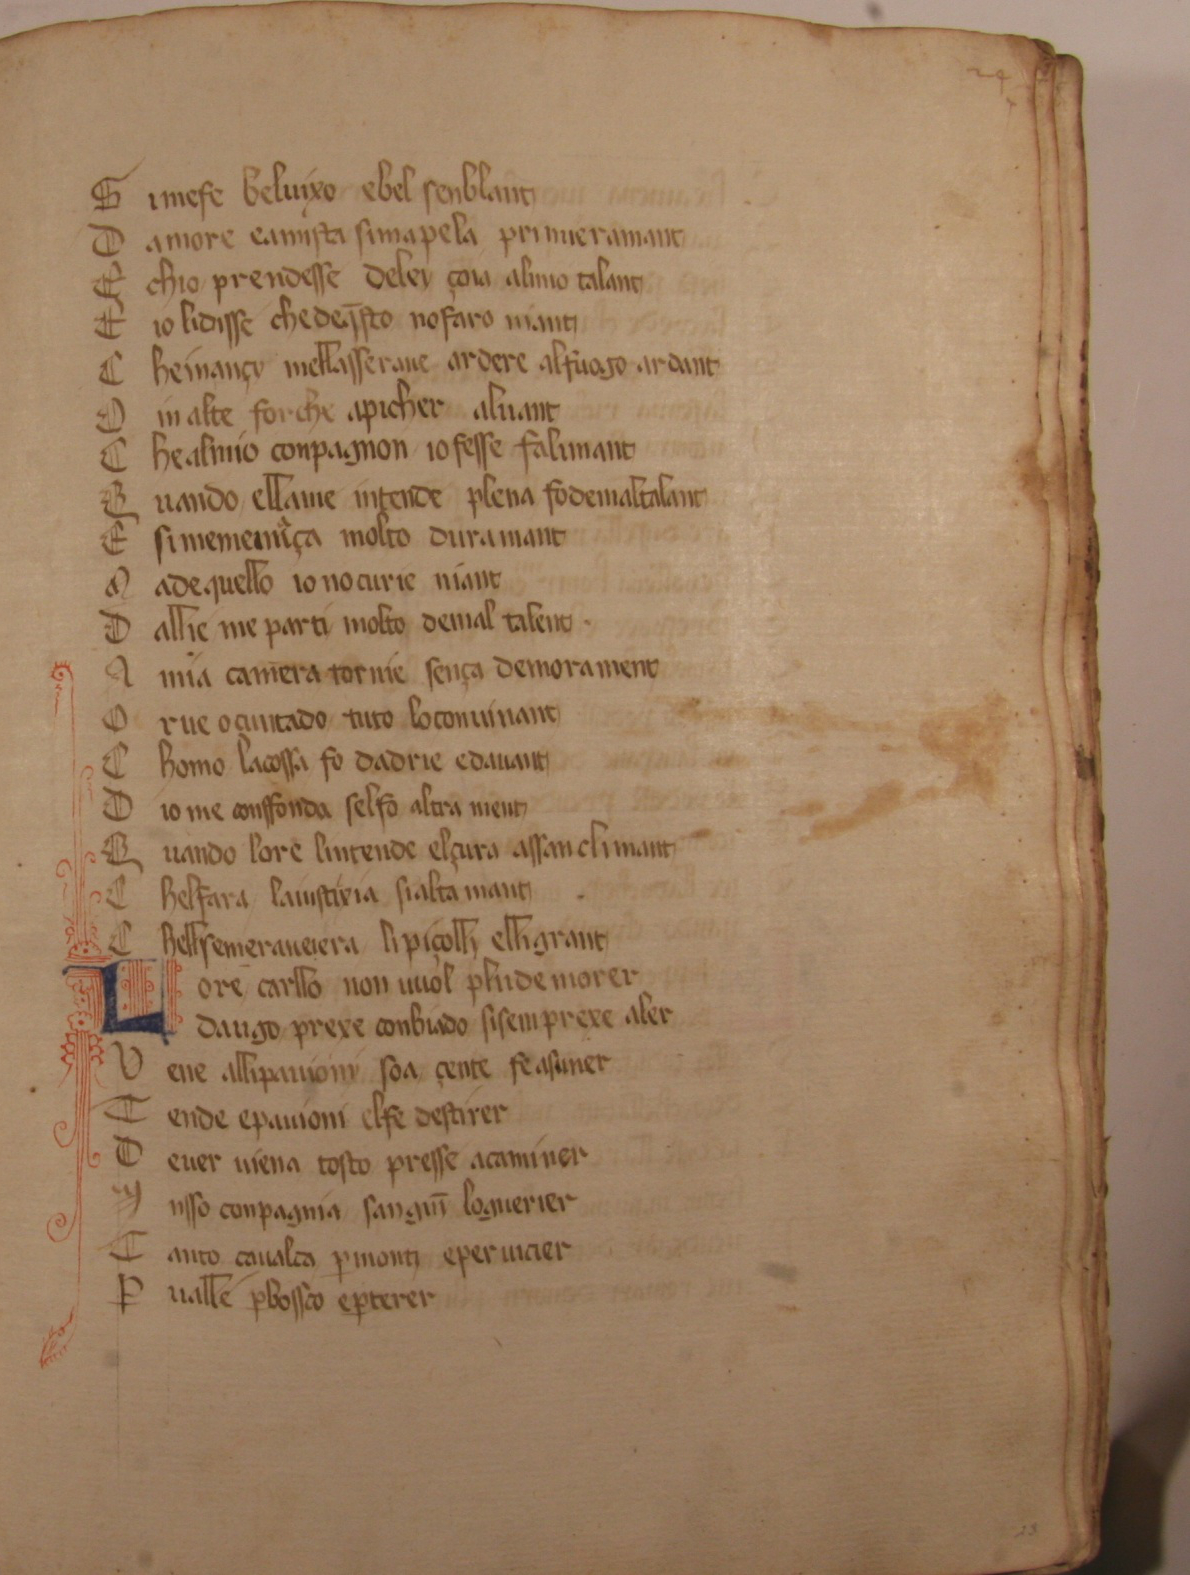 24
S imefe beluixo ebel senblant
D amore eamista simapela primieramant
E chio prendesse deley çoia almio talant
E io lidisse chedeq̄sto nofaro niant
C heinançi mellasseraue ardere alfuogo ardant
O in alte forche apicher aluant
C healmio conpagnon io fesse falimant
Q uando ellame intende plena fodemaltalant
E simemenaça molto duramant
M adequello io nocurie niant
D allie me parti molto demal talent
A mia camera tornie sença demorament
O r ue o cuntado tuto loconuinant
C homo lacossa fo dadrie edauant
D io me conffonda selfo altra ment
Q uando lore lintende elçura assan climant
C helfara lauistixia sialtamant
C hellsemeraueiera li piçolli elli grant
L ore carllo non uuol plu demorer
daugo prexe conbiado sisemprexe aler
V ene allipauioni soa çente feasuner
T ende epauioni elfe destirer
D euer uiena tosto presse acaminer
In sso conpagnia sanguī loguerier
T anto caualca p̱ monti eper uicier
P ualle p̱ bossco ep̱ terer
23